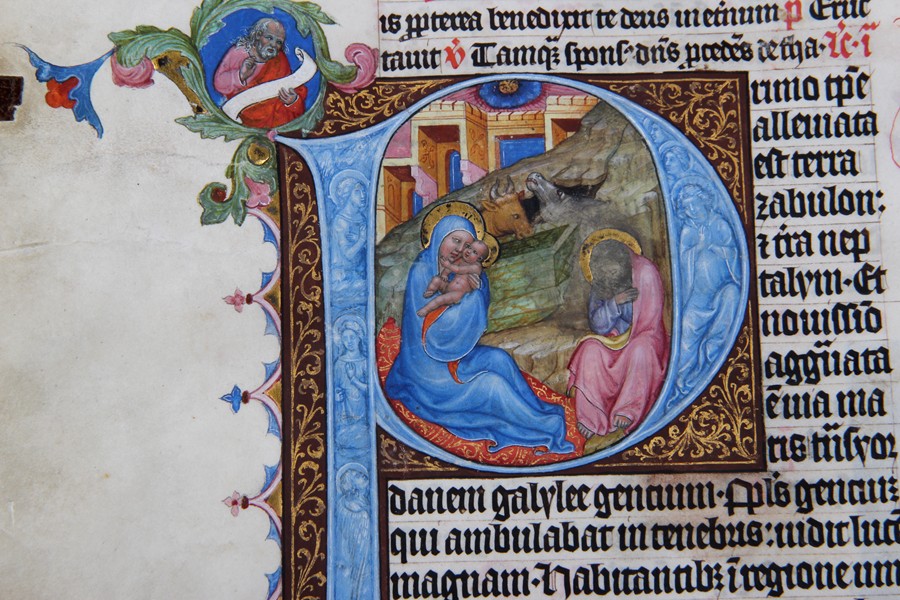 is ꝓpterea benedixit te deus in et̄num p Eruc
tauit v̄ Tamqꝫ spons᾽ dn̄s ꝓcedēs de tha· lc̄· ī
Primo tp̄e
alleuiata
est terra
zabulon:
⁊ t̄ra nep
talym· Et
nouissīo
agg̃uata
ē uia ma
ris tn̄s yor
danem galylee gencium· Ppl̄s gencium
qui ambulabat in tenebris: uidit lucē
magnam· Habitantibꝫ ī regione um